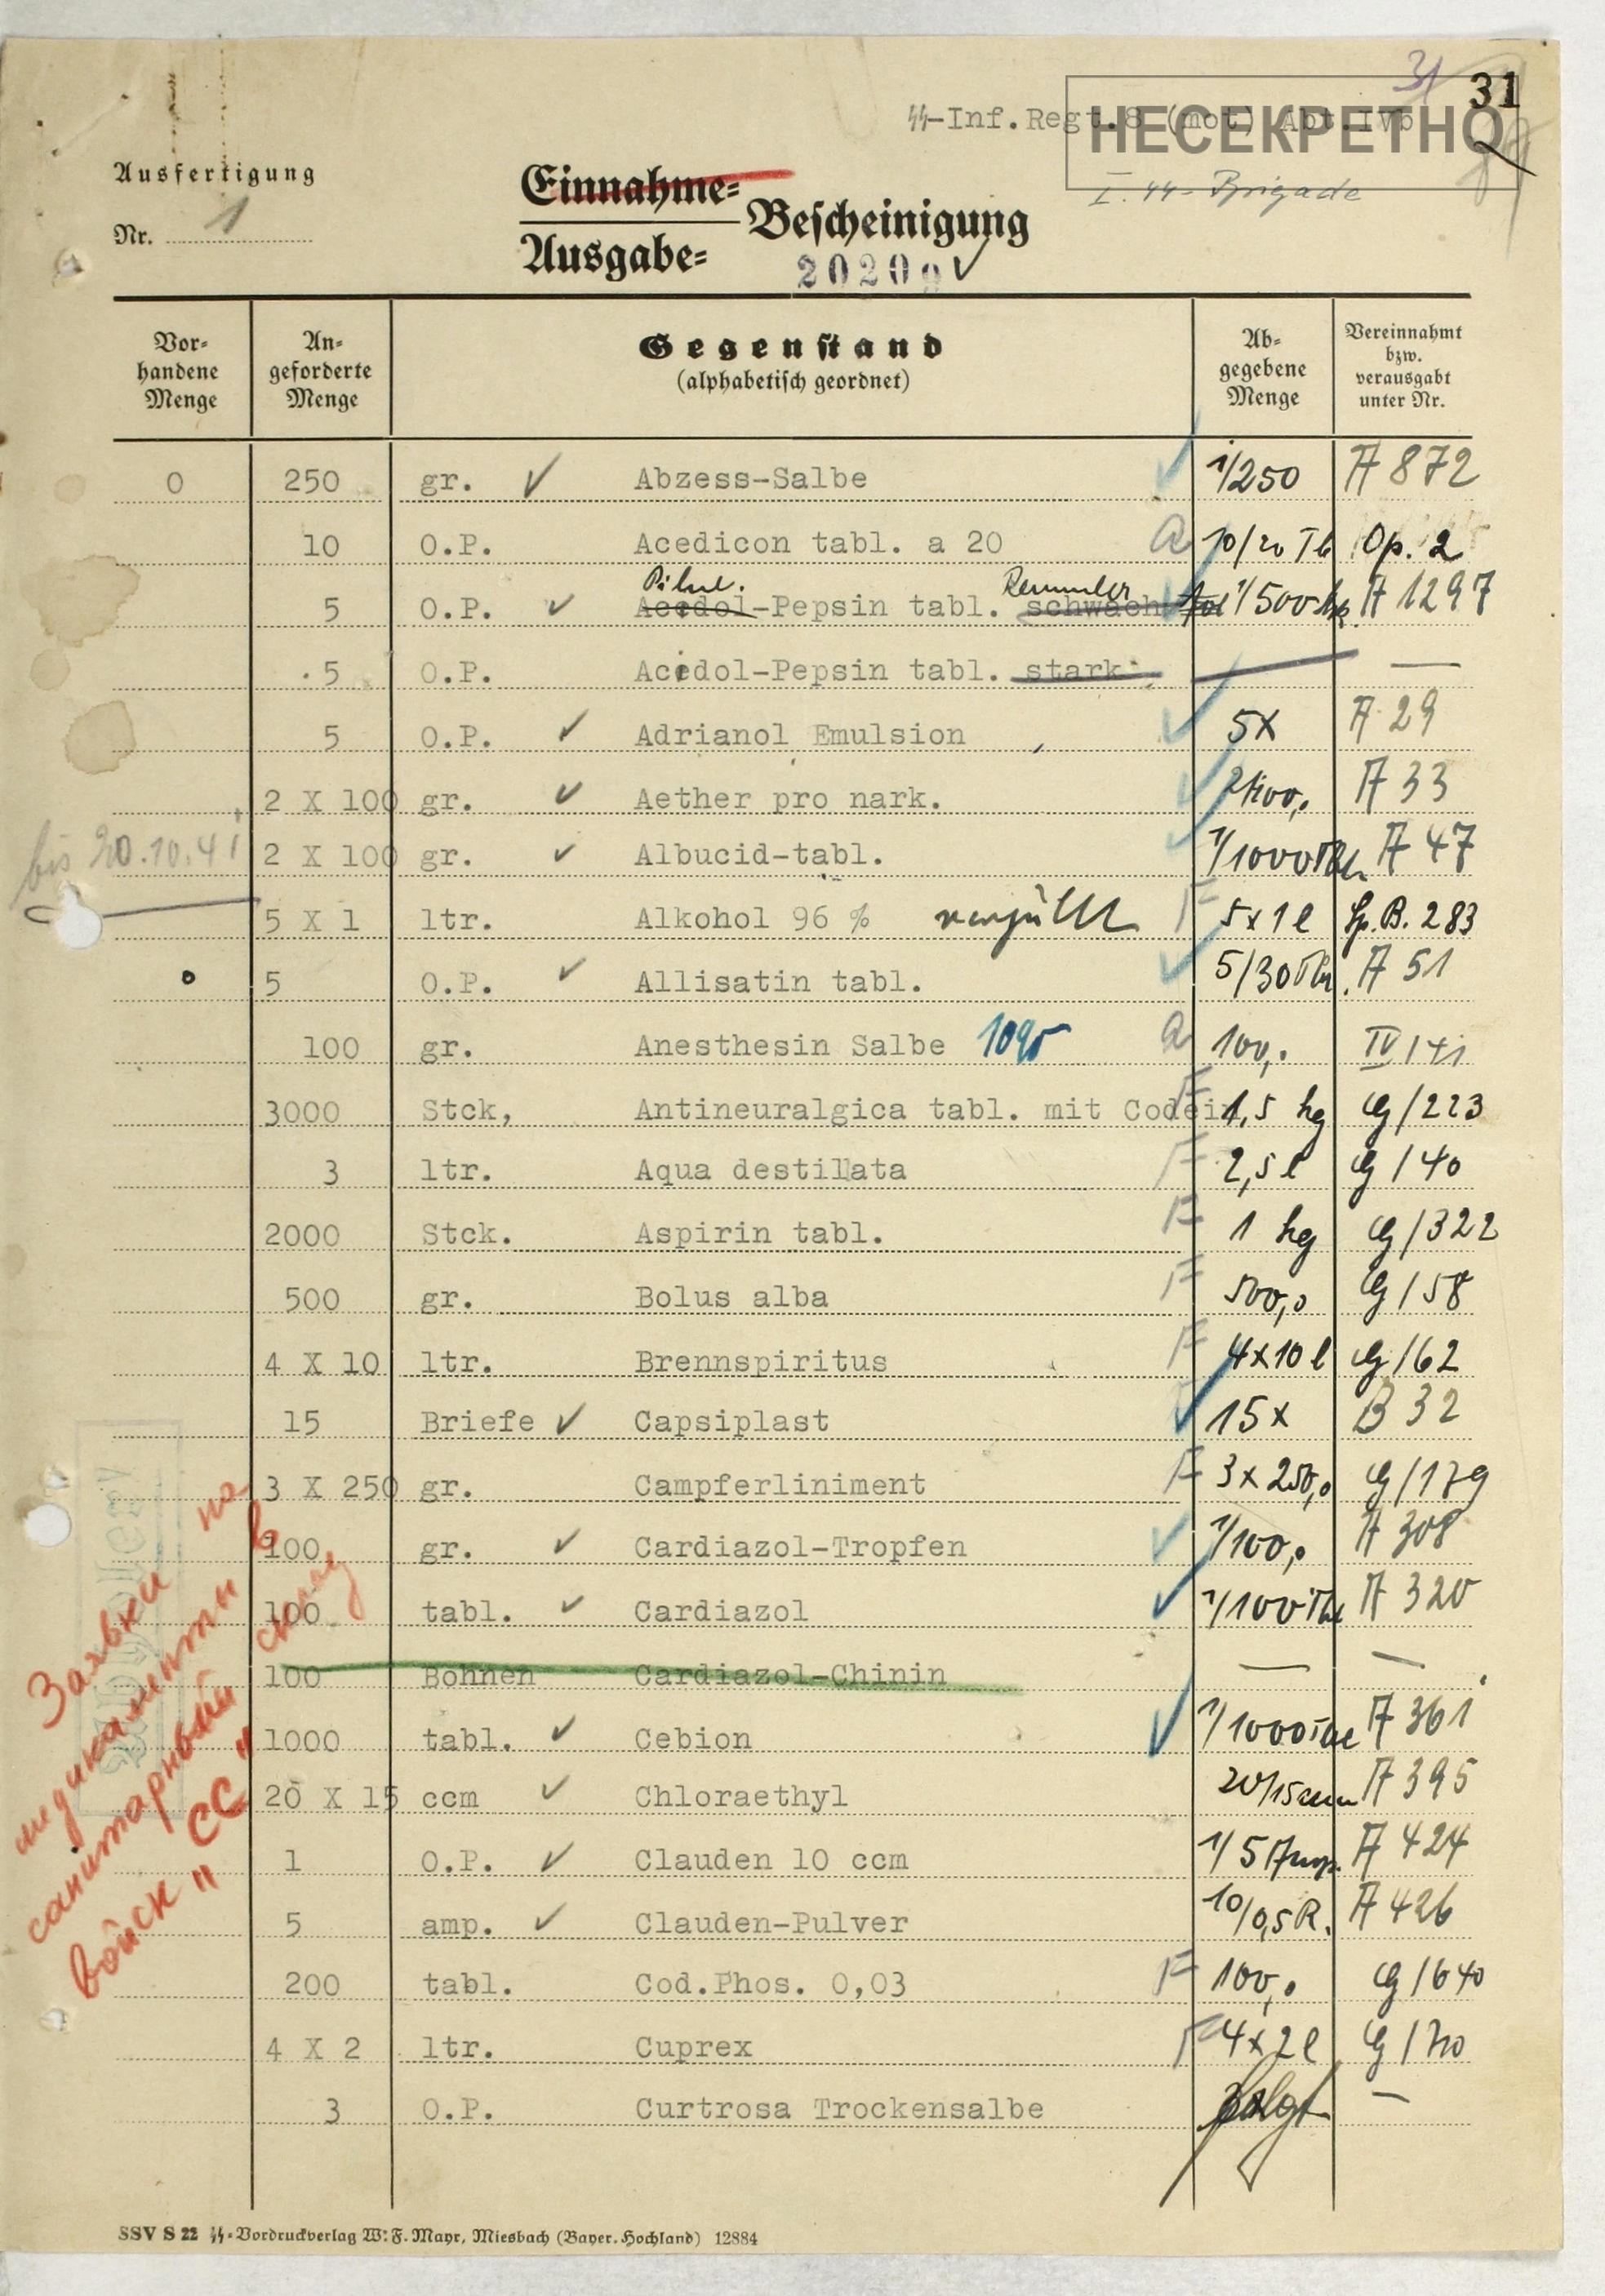 31
31
SS-Inf.Regt.8 (mot) Abt.IVb
НЕСЕКРЕТНО
I. SS-Brigade
Ausfertigung
Nr. 1
Einnahme-
Ausgabe-
Bescheinigung
20209
Vor-
handene
Menge
An-
geforderte
Menge
Gegenstand
(alphabetisch geordnet)
Ab-
gegebene
Menge
Vereinnahmt
bzw.
verausgabt
unter Nr.
0 250 gr. Abzess-Salbe 1/250 A 872
10 O.P. Acedicon tabl. a 20 a 10/20 Tb Op. 2
Pilul. Remmler
5 O.P. Acidol-Pepsin tabl. schwach 1/500 A 1297
5 O.P. Acidol-Pepsin tabl. stark — —
5 O.P. Adrianol Emulsion 5x A 29
2 X 100 gr. Aether pro nark. 2/100,0 A 33
bis 20.10.41
2 X 100 gr. Albucid-tabl. 1/1000 Tbl. A 47
5 X 1 ltr. Alkohol 96 % vergällt F 5x1 l Sp.B. 283
0 5 O.P. Allisatin tabl. 5/30 A 51
100 gr. Anesthesin Salbe 10% a 100,0 IV/41
3000 Stck, Antineuralgica tabl. mit Codein F 1,5 kg G/223
3 ltr. Aqua destillata F 2,5 l G/40
2000 Stck. Aspirin tabl. F 1 kg G/322
500 gr. Bolus alba F 500,0 G/58
4 X 10 ltr. Brennspiritus F 4x10 l G/62
15 Briefe Capsiplast 15x B 32
3 X 250 gr. Campferliniment F 3x250,0 G/179
100 gr. Cardiazol-Tropfen 1/100,0 A 308
100 tabl. Cardiazol 1/100 Tbl A 320
100 Bohnen Cardiazol-Chinin — —
1000 tabl. Cebion 1/1000 Tbl A 361
20 X 15 ccm Chloraethyl 20/15 ccm A 395
1 O.P. Clauden 10 ccm 1/5 Amp. A 424
5 amp. Clauden-Pulver 10/0,5 R. A 426
200 tabl. Cod.Phos. 0,03 F 100,0 G/640
4 X 2 ltr. Cuprex F 4x2 l G/70
3 O.P. Curtrosa Trockensalbe folgt —
Заявки на
медикаменты в
санитарный склад
войск "СС"
SSV S 22 SS-Vordruckverlag W. F. Mayr, Miesbach (Bayer. Hochland) 12884